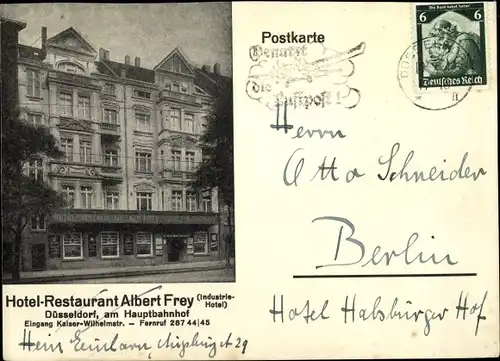 Postkarte
Die Saar kehrt heim!
6 6
Deutsches Reich
Benutzt
die
Luftpost!
Herrn
Otto Schneider
Berlin
Hotel Habsburger Hof
Hotel-Restaurant Albert Frey (Industrie-Hotel)
Düsseldorf, am Hauptbahnhof
Eingang Kaiser-Wilhelmstr. – Fernruf 287 44|45
Hein
29